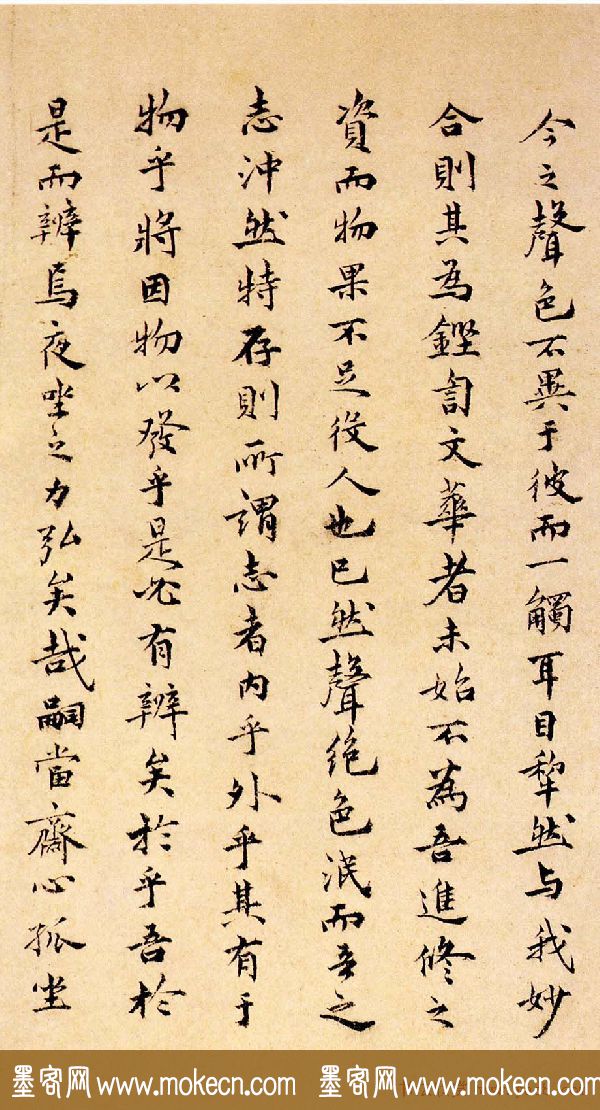 今之聲色不異于彼而一觸耳目犂然与我妙
合則其為鏗訇文華者未始不為吾進修之
資而物果不足役人也已然聲絶色泯而吾之
志沖然特存則所謂志者内乎外乎其有于
物乎將因物以發乎是必有辨矣於乎吾於
是而辨焉夜坐之力弘矣哉嗣當齋心孤坐
墨客网 www.mokecn.com 墨客网 www.mokecn.com